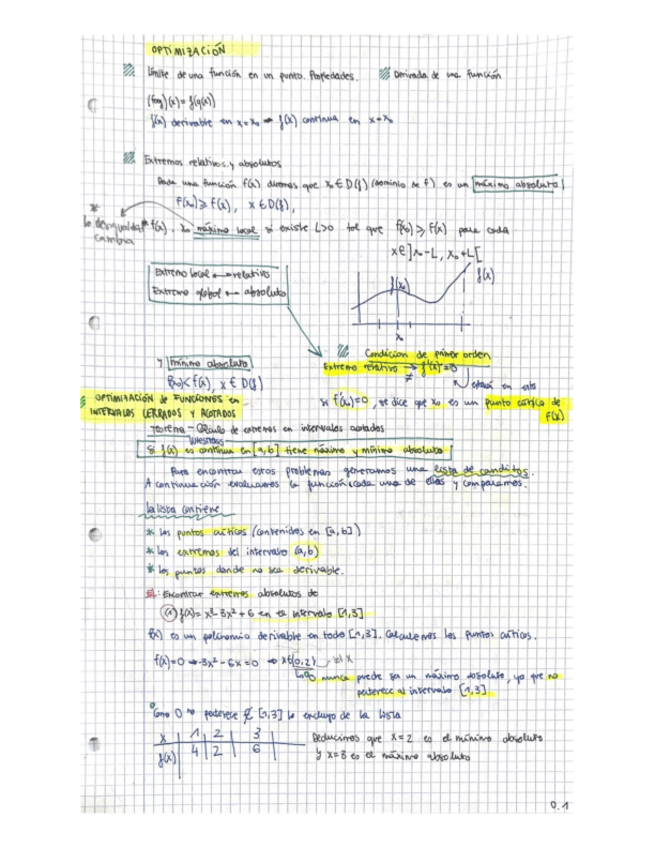 OPTIMIZACIÓN
Límite de una función en un punto. Propiedades. Derivada de una función
(fog)(x) = f(g(x))
f(x) derivable en x=x₀ ⇒ f(x) continua en x=x₀
Extremos relativos y absolutos
Dada una función f(x) diremos que x₀ ∈ D(f) (dominio de f) es un máximo absoluto
f(x₀) ≥ f(x), x ∈ D(f),
*
la desigualdad
cambia
f(x). x₀ máximo local si existe L>0 tal que f(x₀) ≥ f(x) para cada
x ∈ ]x₀-L, x₀+L[
Extremo local ↔ relativo
Extremo global ↔ absoluto
f(x₀)
f(x)
x₀
Condición de primer orden
y mínimo absoluto
Extremo relativo → f'(x)=0
f(x₀) < f(x), x ∈ D(f)
si f'(x₀)=0, se dice que x₀ es un punto crítico de
f(x)
OPTIMIZACIÓN de FUNCIONES en
INTERVALOS CERRADOS y ACOTADOS
Teorema - Cálculo de extremos en intervalos acotados
Si f(x) es continua en [a,b] tiene máximo y mínimo absoluto
Para encontrar estos problemas generamos una lista de canditos.
A continuación evaluaremos la función cada una de ellas y comparemos.
La lista contiene
* los puntos críticos (contenidos en [a,b])
* los extremos del intervalo (a,b)
* los puntos donde no sea derivable.
Encontrar extremos absolutos de
① f(x)= x³-3x²+6 en el intervalo [1,3]
f(x) es un polinomio derivable en todo [1,3]. Calculemos los puntos críticos.
f(x)=0 ⇒ 3x²-6x=0 ⇒ x∈{0,2}
Los 0 nunca puede ser un máximo absoluto, ya que no
pertenece al intervalo [1,3]
Como 0 no pertenece ∉ [1,3] lo excluyo de la lista
x 1 2 3
f(x) 4 2 6
Deducimos que x=2 es el mínimo absoluto
y x=3 es el máximo absoluto
0.1